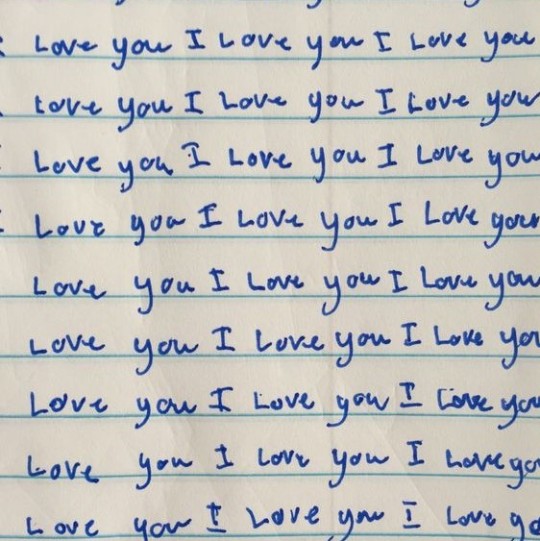 Love you I Love you I Love you
Love you I Love you I Love you
Love you I Love you I Love you
I Love you I Love you I Love your
Love you I Love you I Love you
Love you I Love you I Love you
Love you I Love you I Love you
Love you I Love you I Love yo
Love you I Love you I Love yo